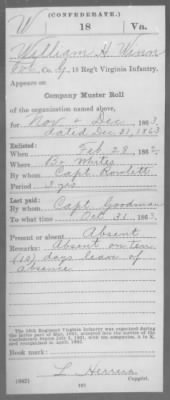 (CONFEDERATE.)
W 18 Va.
William H. Winn
Co. G, 18 Reg't Virginia Infantry.
Appears on
Company Muster Roll
of the organization named above,
for Nov & Dec, 1863.
dated Dec 31, 1863
Enlisted:
When Feb 28, 186
Where Bo Whites
By whom Capt. Rowlett
Period 3 yrs
Last paid:
By whom Capt Goodman
To what time Oct 31, 1863.
Present or absent Absent
Remarks: Absent on ten
(10) days leave of
absence
The 18th Regiment Virginia Infantry was organized during
the latter part of May, 1861, accepted into the service of the
Confederate States July 1, 1861, with ten companies, A to K,
and reorganized in April, 1862.
Book mark:
L. Herren
(642) Copyist.